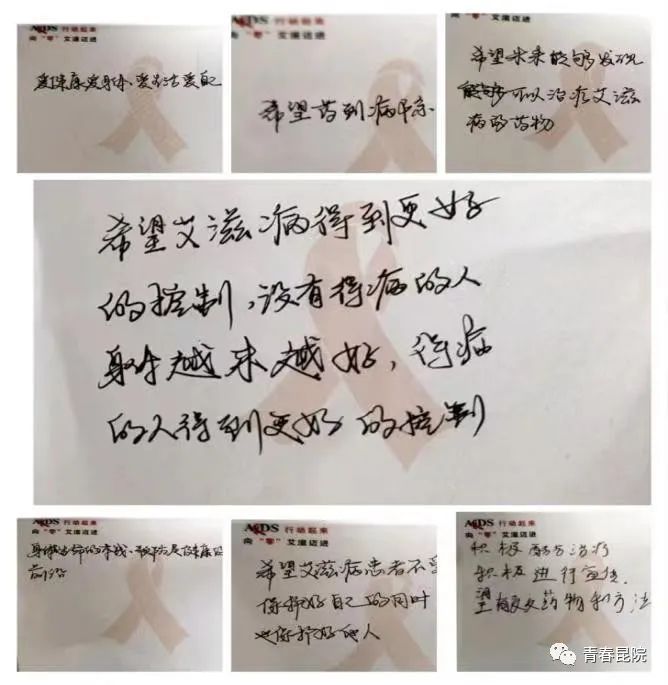 AIDS 行动起来
向“零”艾滋迈进
爱健康爱身体 爱生活爱自己
向“零”艾滋迈进
希望药到病除
AIDS 行动起来
向“零”艾滋迈进
希望未来能够发现
能够可以治疗艾滋
病的药物
希望艾滋病得到更好
的控制,没有得病的人
身体越来越好,得病
的人得到更好的控制
AIDS 行动起来
向“零”艾滋迈进
身体是革命的本钱
前沿
AIDS 行动起来
向“零”艾滋迈进
希望艾滋病患者不要
保护好自己的同时
也保护好他人
AIDS 行动起来
向“零”艾滋迈进
积极配合治疗
积极进行宣传.
望 药物和方法
青春昆院